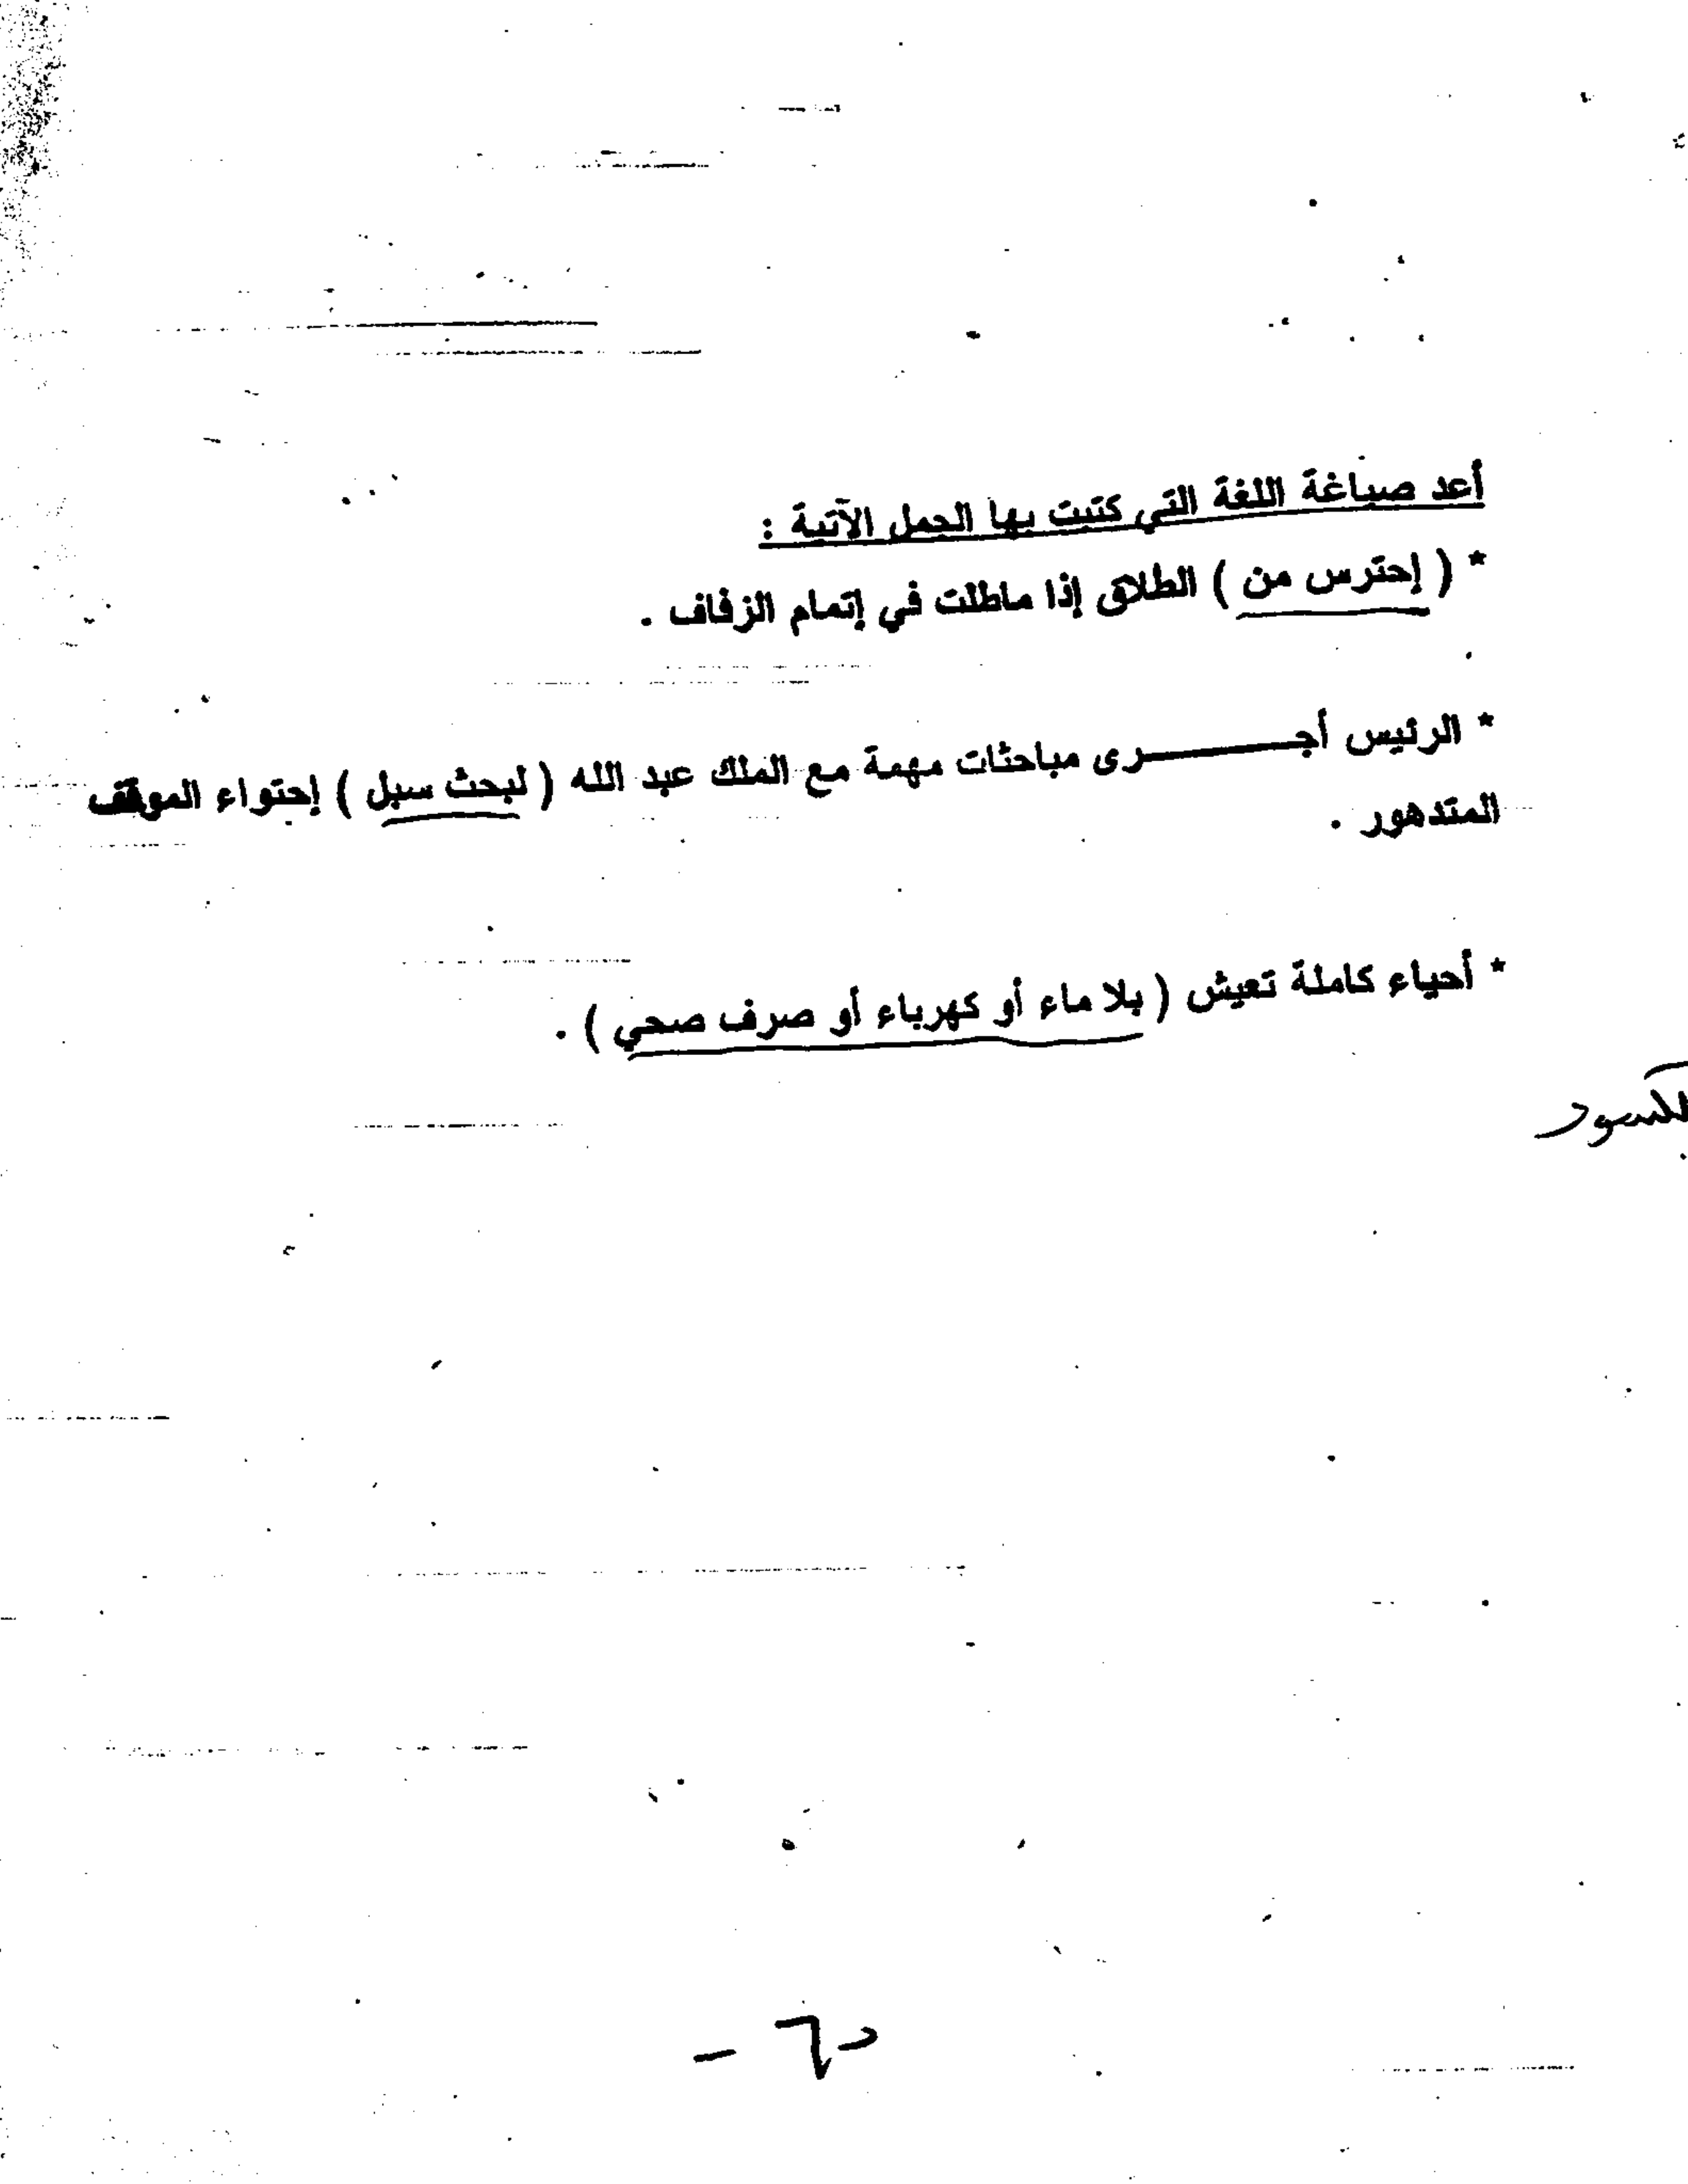 أعد صياغة اللغة التي كتبت بها الجمل الآتية :
* ( إحترس من ) الطلاق إذا ماطلت في إتمام الزفاف .
* الرئيس أجـــــــــرى مباحثات مهمة مع الملك عبد الله ( لبحث سبل ) إحتواء الموقف
المتدهور .
* أحياء كاملة تعيش ( بلا ماء أو كهرباء أو صرف صحي ) .